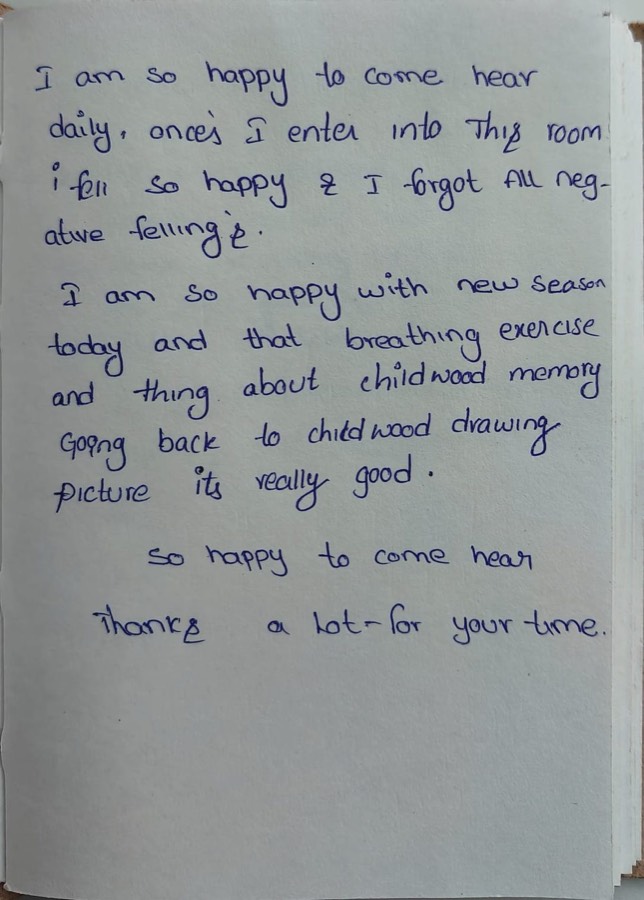 I am so happy to come hear
daily, once's I enter into This room
i fell so happy & I forgot All neg-
ative felling's.
I am so happy with new season
today and that breathing exercise
and thing about childwood memory
Going back to childwood drawing
picture its really good.
so happy to come hear
Thanks a Lot-for your time.